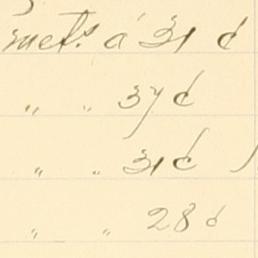 mets. á 31 ¢
" " 37 ¢
" " 31 ¢
" " 28 ¢